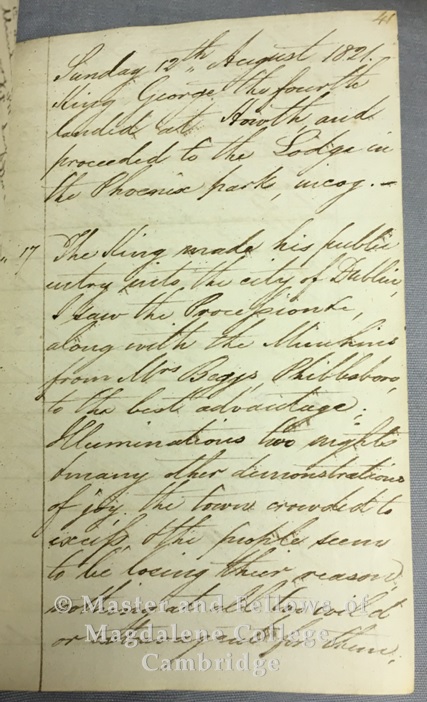 41
Sunday 12th August 1821.
King George the fourth
landed at Howth, and
proceeded to the Lodge in
the Phoenix park, incog. —
17 The King made his public
entry into the city of Dublin,
I saw the Procession &c,
along with the
from Mrs Beggs, Phibbsboro,
to the best advantage;
Illuminations two nights
& many other demonstrations
of joy. the town crowded to
excess & the people seem
to be losing their reason,
nothing at all too
or for them.
© Master and Fellows of
Magdalene College
Cambridge